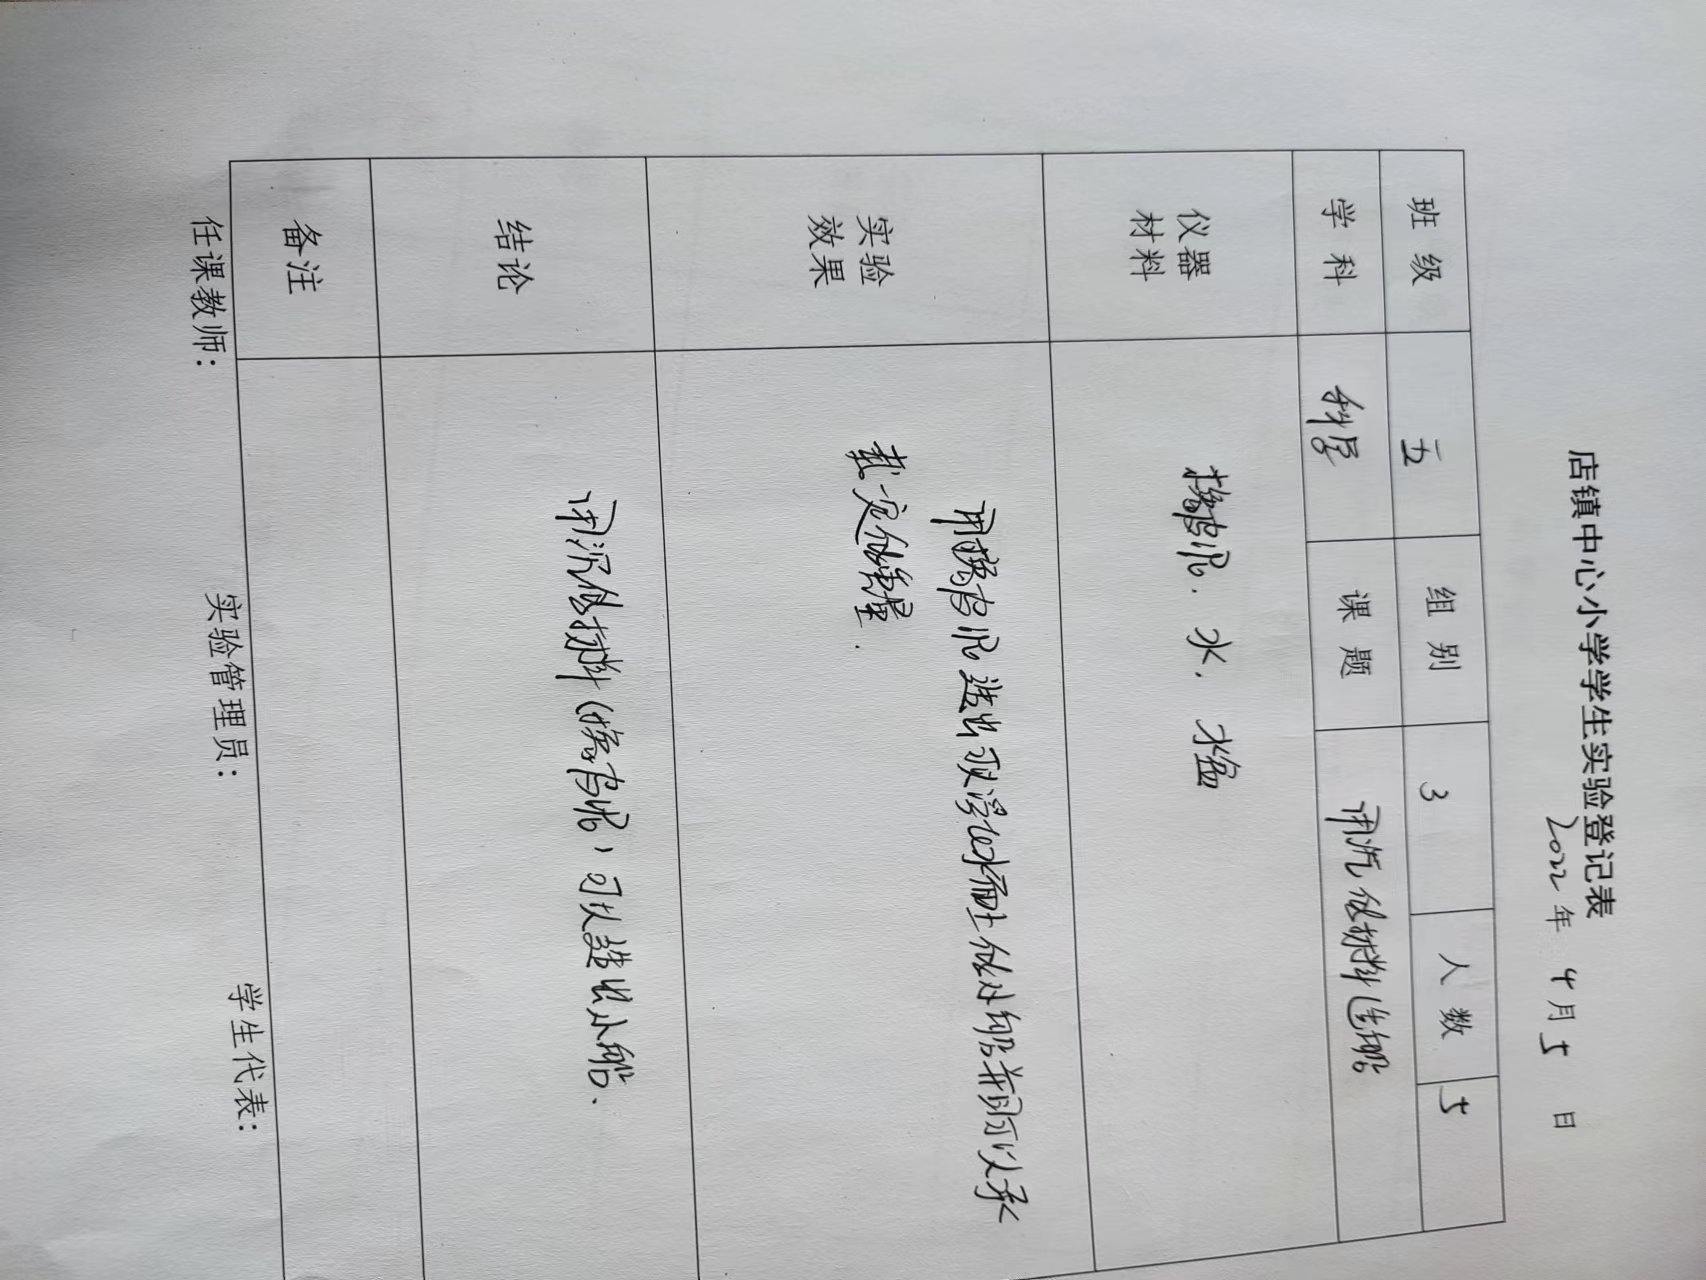 店镇中心小学学生实验登记表
2022年 4月 5 日
班 级 五 组 别 3 人 数 5
学 科 科学 课 题 用沉的材料造船
仪器
材料
橡皮泥. 水. 水盆
实验
效果
用橡皮泥造出可以浮在水面上的小船并且可以承
载一定的重量.
结论
用沉的材料(橡皮泥)可以造出小船.
备注
任课教师: 实验管理员: 学生代表: